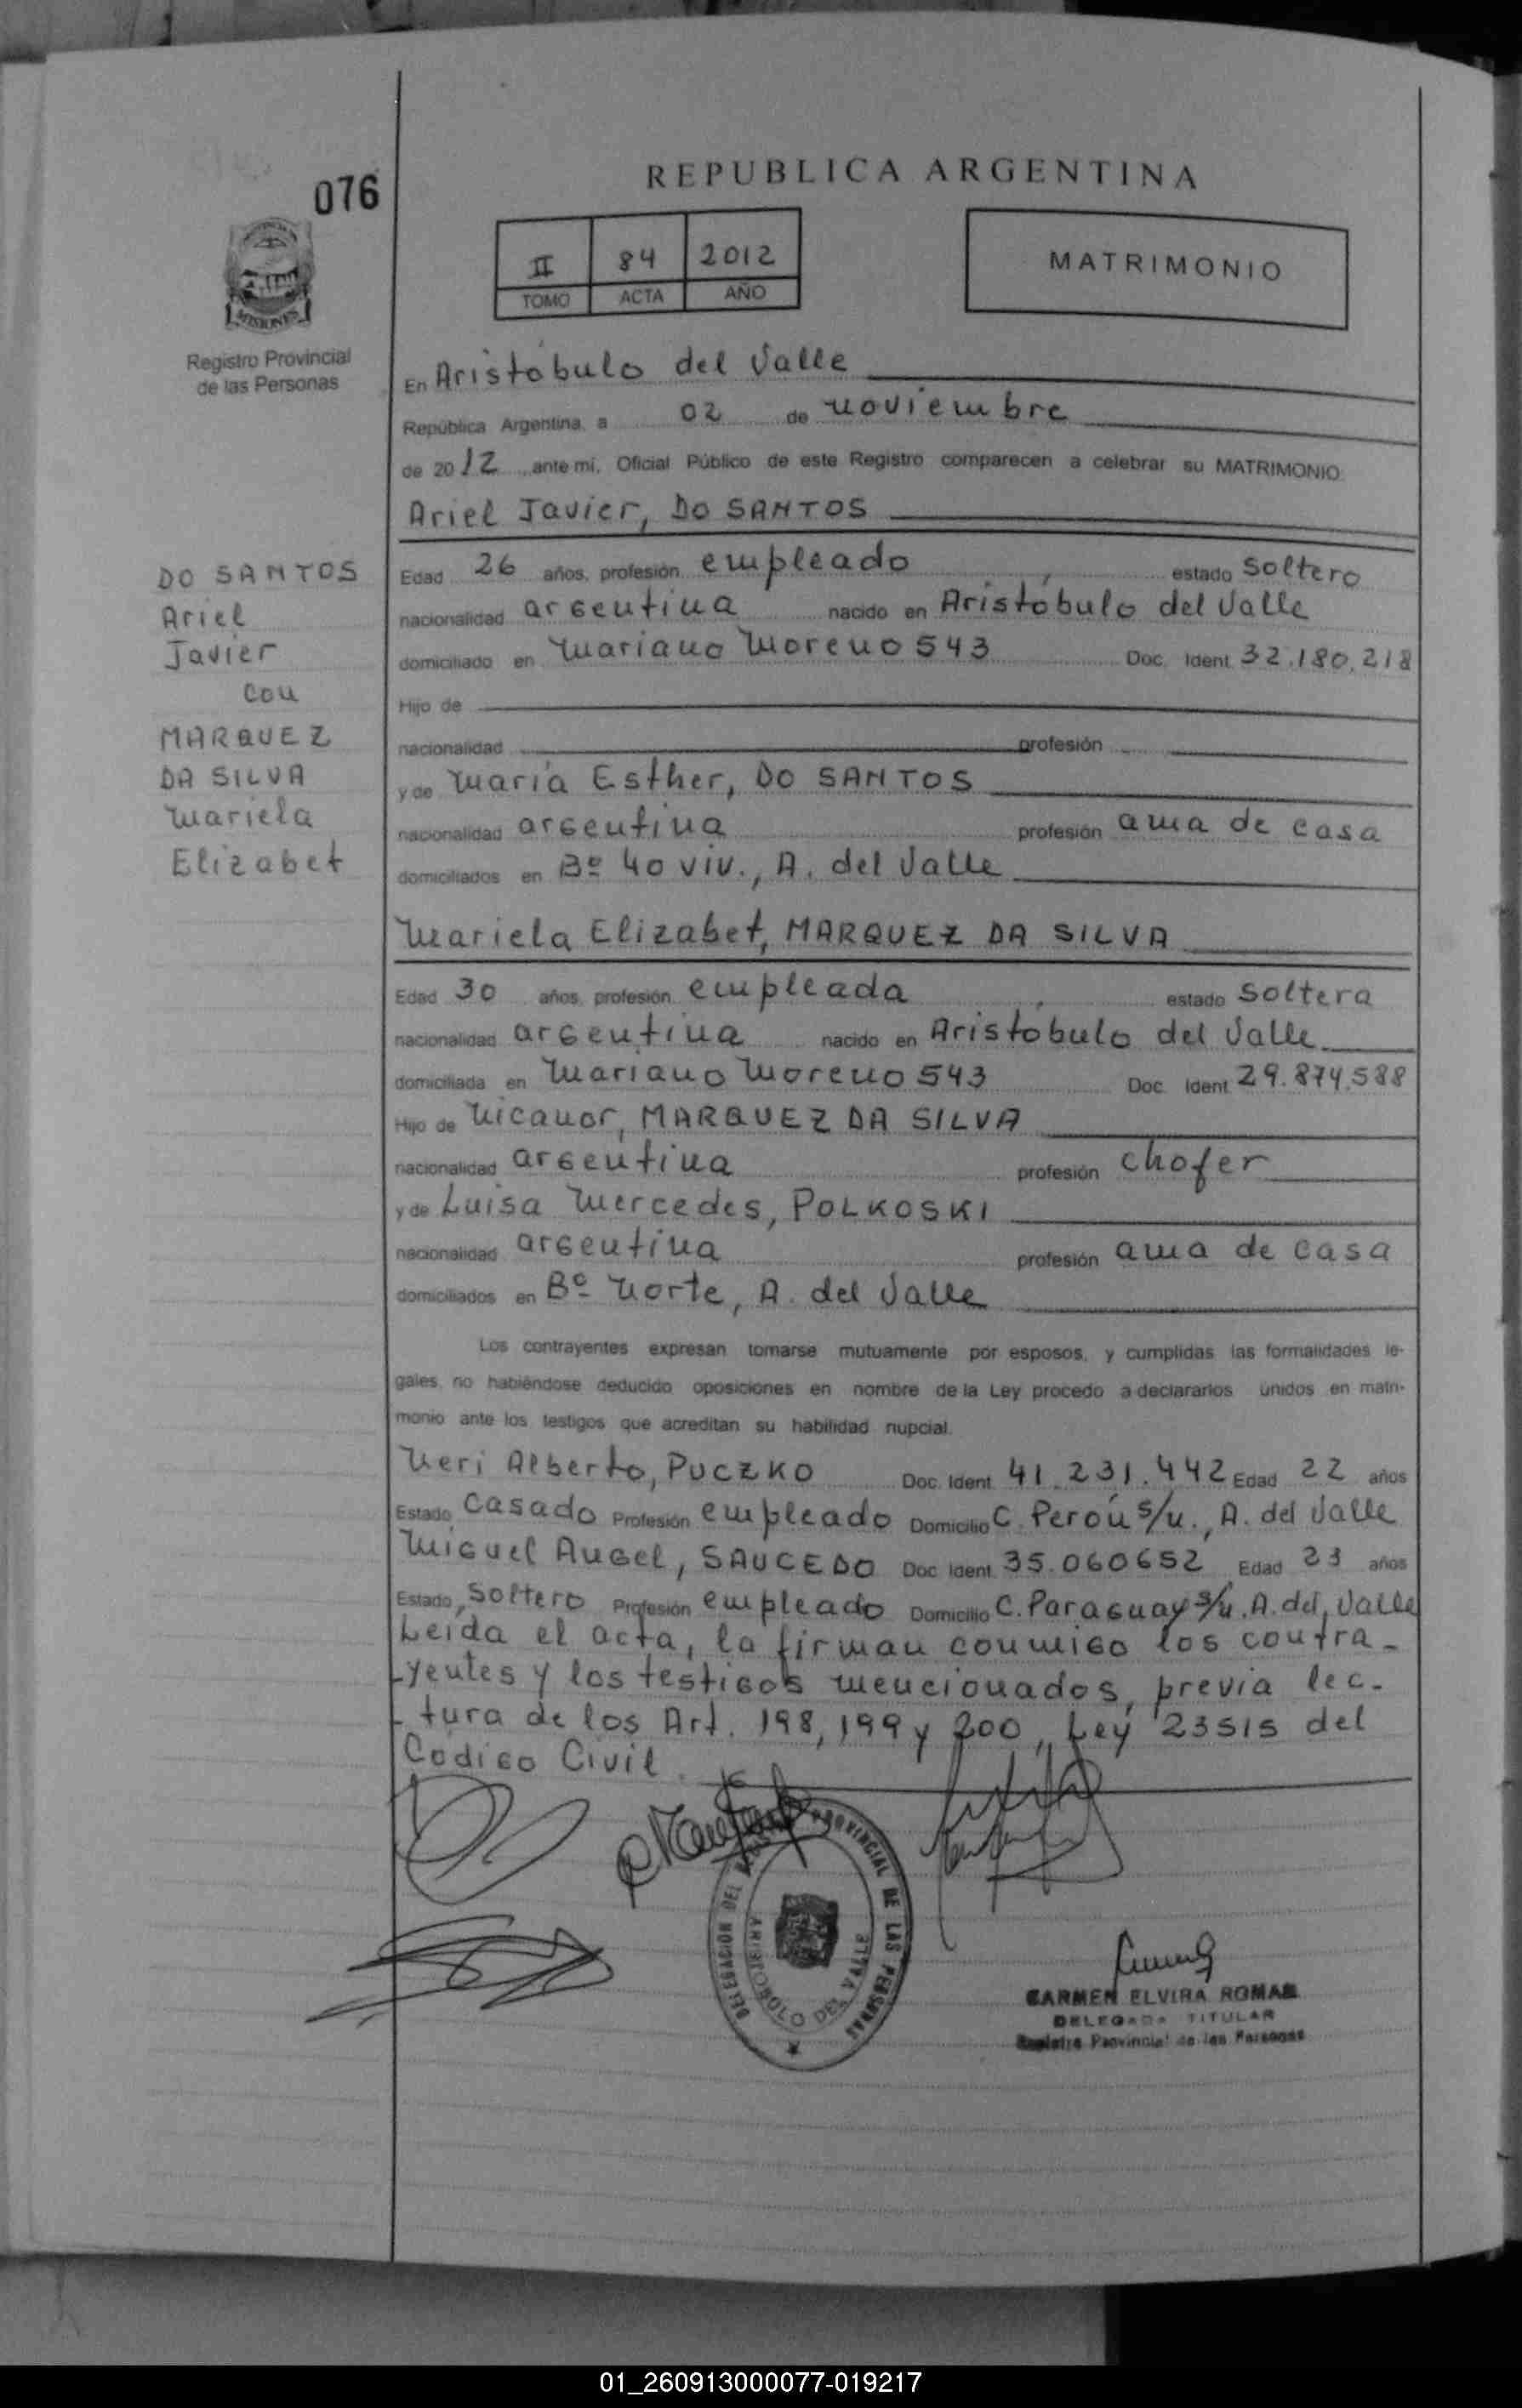 076
REPUBLICA ARGENTINA
II 84 2012
TOMO ACTA AÑO
MATRIMONIO
MISIONES
Registro Provincial
de las Personas
En Aristóbulo del Valle
República Argentina, a 02 de noviembre
de 2012 ante mí, Oficial Público de este Registro comparecen a celebrar su MATRIMONIO:
Ariel Javier, DO SANTOS
DO SANTOS
Ariel
Javier
con
MARQUEZ
DA SILVA
Mariela
Elizabet
Edad 26 años, profesión empleado estado soltero
nacionalidad argentina nacido en Aristóbulo del Valle
domiciliado en Mariano Moreno 543 Doc. Ident. 32.180.218
Hijo de
nacionalidad profesión
y de María Esther, DO SANTOS
nacionalidad argentina profesión ama de casa
domiciliados en Bº 40 viv., A. del Valle
Mariela Elizabet, MARQUEZ DA SILVA
Edad 30 años, profesión empleada estado soltera
nacionalidad argentina nacido en Aristóbulo del Valle
domiciliada en Mariano Moreno 543 Doc. Ident. 29.874.588
Hijo de Nicanor, MARQUEZ DA SILVA
nacionalidad argentina profesión chofer
y de Luisa Mercedes, POLKOSKI
nacionalidad argentina profesión ama de casa
domiciliados en Bº Norte, A. del Valle
Los contrayentes expresan tomarse mutuamente por esposos, y cumplidas las formalidades le-
gales, no habiéndose deducido oposiciones en nombre de la Ley procedo a declararlos unidos en matri-
monio ante los testigos que acreditan su habilidad nupcial.
Neri Alberto, PUCZKO Doc. Ident. 41.231.442 Edad 22 años
Estado casado Profesión empleado Domicilio C. Perón s/n., A. del Valle
Miguel Angel, SAUCEDO Doc. Ident. 35.060652 Edad 23 años
Estado soltero Profesión empleado Domicilio C. Paraguay s/n. A. del Valle
Leida el acta, la firman conmigo los contra-
-yentes y los testigos mencionados, previa lec-
-tura de los Art. 198, 199 y 200, Ley 23515 del
Codigo Civil.
DELEGACION DEL REGISTRO PROVINCIAL DE LAS PERSONAS
ARISTOBULO DEL VALLE
CARMEN ELVIRA ROMAN
DELEGADA TITULAR
Registro Provincial de las Personas
01_260913000077-019217